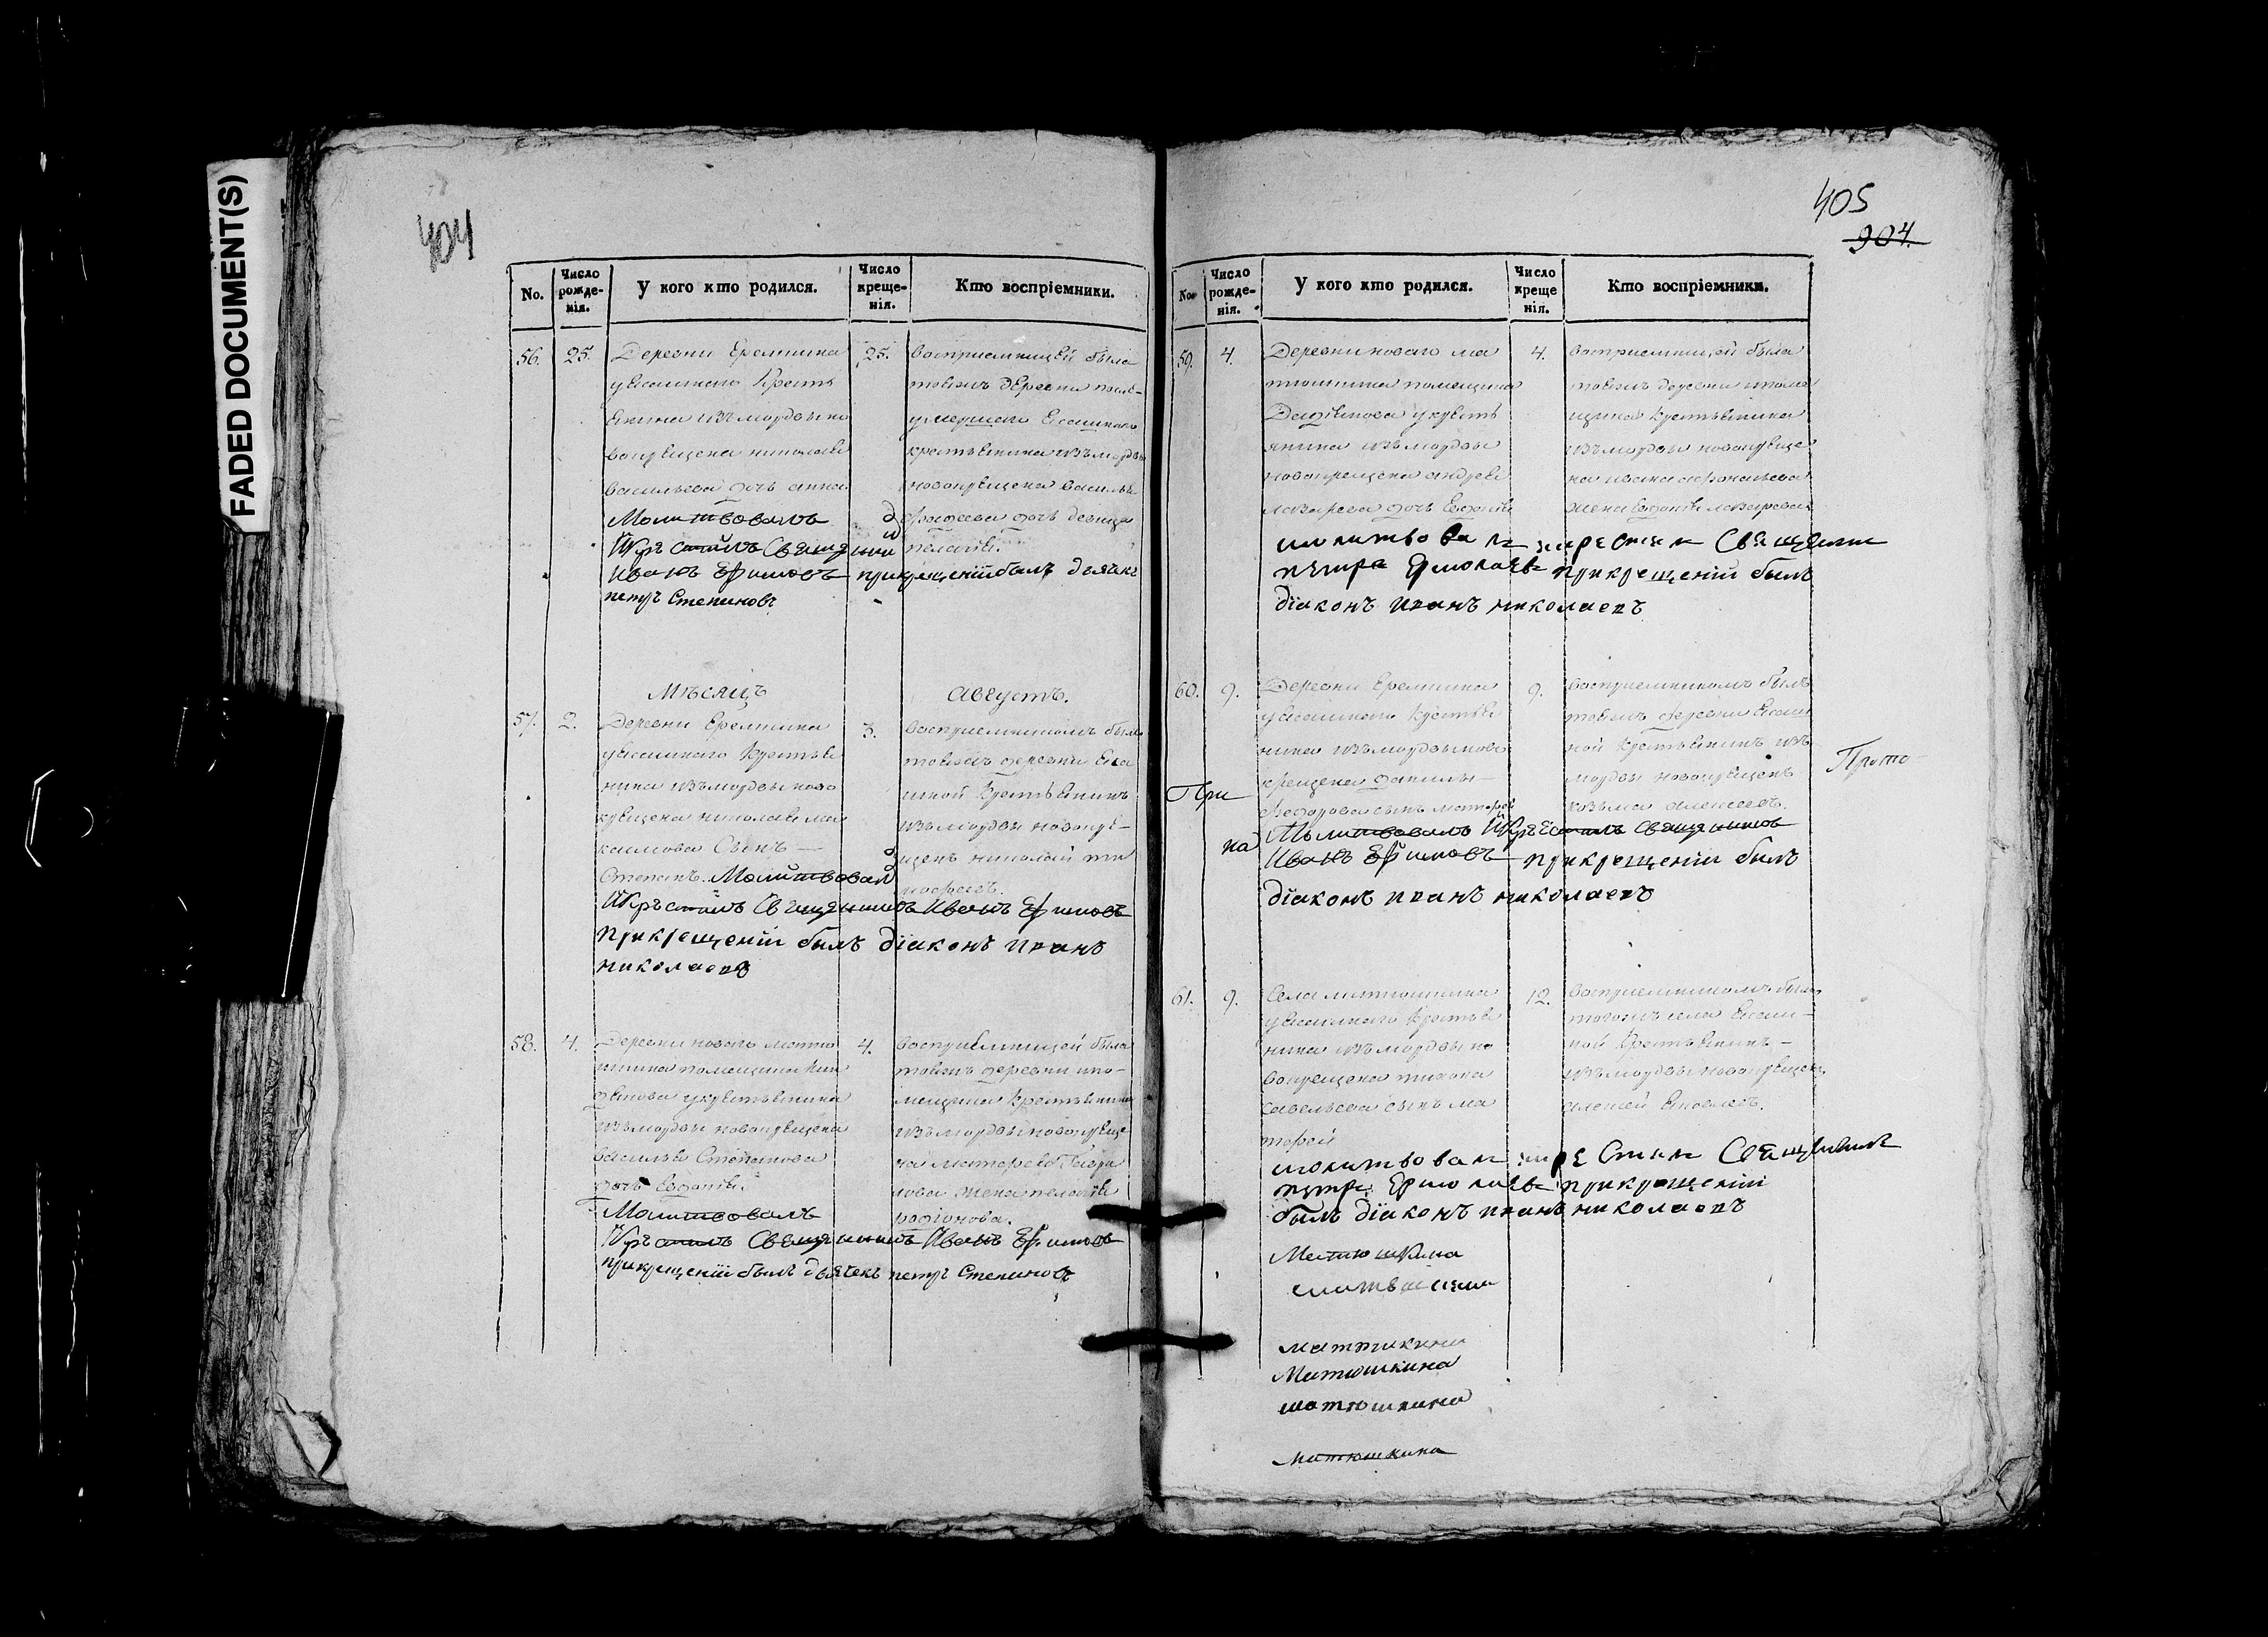 FADED DOCUMENT(S)
404
No.
Число рожде-нія.
У кого кто родился.
Число креще-нія.
Кто воспріемники.
56.
25.
Деревни Еремкина
уясашнаго Кресть
янина изъ мордвы но
вокрещена николая
васильева дочь анна
Молитвовалъ
Икрестилъ Священни
Иванъ Ефимовъ прикрещеніи былъ дьячекъ
петръ Степановъ
25.
восприемницей была
тояжъ деревни
умершаго Ясашнаго
крестьянина изъ мордвы
новокрещена василья
дочь девица
пелагія.
Мѣсяцъ
Августъ.
57.
2.
Деревни Еремкина
уясашнаго Крестья
нина изъ мордвы ново
крещена николая ма
каимова Сынъ —
Степанъ. Молитвовал
Икрестилъ Священникъ Иванъ Ефимовъ
прикрещеніи былъ діаконъ иванъ
николаевъ
3.
восприемникомъ былъ
тояжъ деревни Яса
шной Крестьянинъ
изъ мордвы новокре-
щенъ николай
58.
4.
Деревни новаго матю
шкина помещика
уКрестьянина
изъ мордвы новокрещена
василья Степанова
дочь Евдокія.
Молитвовалъ
Икрестилъ Священникъ Иванъ Ефимовъ
прикрещеніи былъ дьячекъ петръ Степановъ
4.
восприемницей была
тояжъ деревни ипо-
мещика Крестьянина
изъ мордвы новокреще
на
нова жена пелагія
родіонова.
405
904.
No.
Число рожде-нія.
У кого кто родился.
Число креще нія.
Кто воспріемники.
59.
4.
Деревни новаго ма
тюшкина помещика
укресть
янина изъ мордвы
новокрещена андрея
лазарева дочь Евдокія
молитвовалъ икрестилъ Священни
петръ Ермолаевъ прикрещеніи былъ
діаконъ иванъ николаевъ
4.
восприемницей была
тояжъ деревни ипоме
щика крестьянина
изъ мордвы новокреще
на ивана афонасьева
жена
60.
9.
Деревни Еремкина
уясашнаго Крестья
нина изъ мордвы ново
крещена данилы
Федорова сынъ матфей
Молитвовалъ Икрестилъ священникъ
Иванъ Ефимовъ прикрещеніи былъ
діаконъ иванъ николаевъ
9.
восприемникомъ былъ
тояжъ деревни Ясаш
ной Крестьянинъ изъ
мордвы новокрещенъ
козьма алексеевъ.
При
на
Прото-
61.
9.
Села матюшкина
уясашнаго Крестья
нина изъ мордвы но
вокрещена тихона
савельева сынъ ма
тфей
молитвовалъ икрестилъ Священникъ
петръ Ермолаевъ прикрещеніи
былъ діаконъ иванъ николаевъ
12.
восприемникомъ былъ
тогожъ села Ясаш-
ной Крестьянинъ —
изъ мордвы новокрещенъ
алексей Яковлевъ.
Матюшкина
Матюшкина
матюшкина
Матюшкина